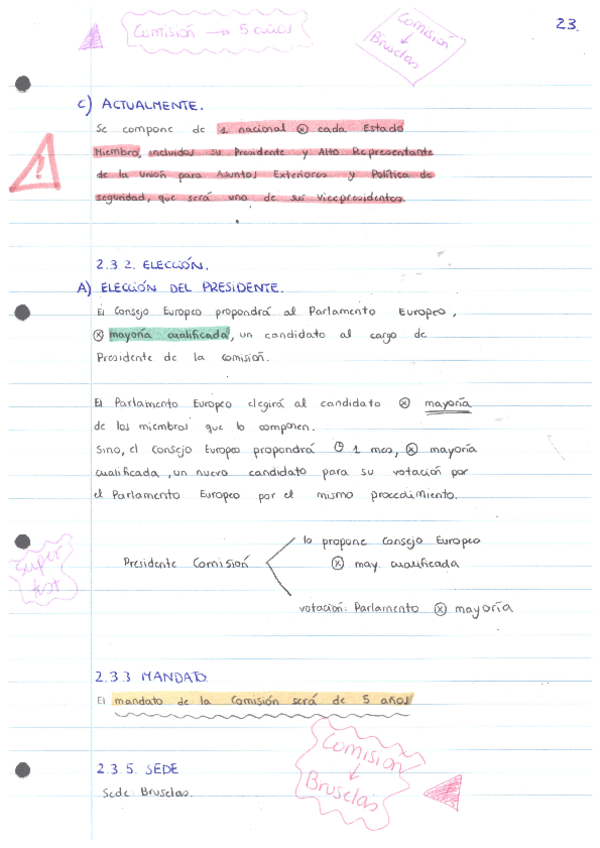 Comisión → 5 años
Comisión
↓
Bruselas
23.
C) ACTUALMENTE.
Se compone de 1 nacional ⊗ cada Estado
Miembro, incluidos su Presidente y Alto Representante
de la Unión para Asuntos Exteriores y Política de
seguridad, que será uno de sus Vicepresidentes.
!
2.3.2. ELECCIÓN.
A) ELECCIÓN DEL PRESIDENTE.
El Consejo Europeo propondrá al Parlamento Europeo,
⊗ mayoría cualificada, un candidato al cargo de
Presidente de la Comisión.
El Parlamento Europeo elegirá al candidato ⊗ mayoría
de los miembros que lo componen.
Sino, el Consejo Europeo propondrá 1 mes, ⊗ mayoría
cualificada, un nuevo candidato para su votación por
el Parlamento Europeo por el mismo procedimiento.
Super
test
Presidente Comisión
lo propone Consejo Europeo
⊗ may. cualificada
votación: Parlamento ⊗ mayoría
2.3.3 MANDATO
El mandato de la Comisión será de 5 años
Comisión
↓
Bruselas
2.3.5. SEDE
Sede: Bruselas.